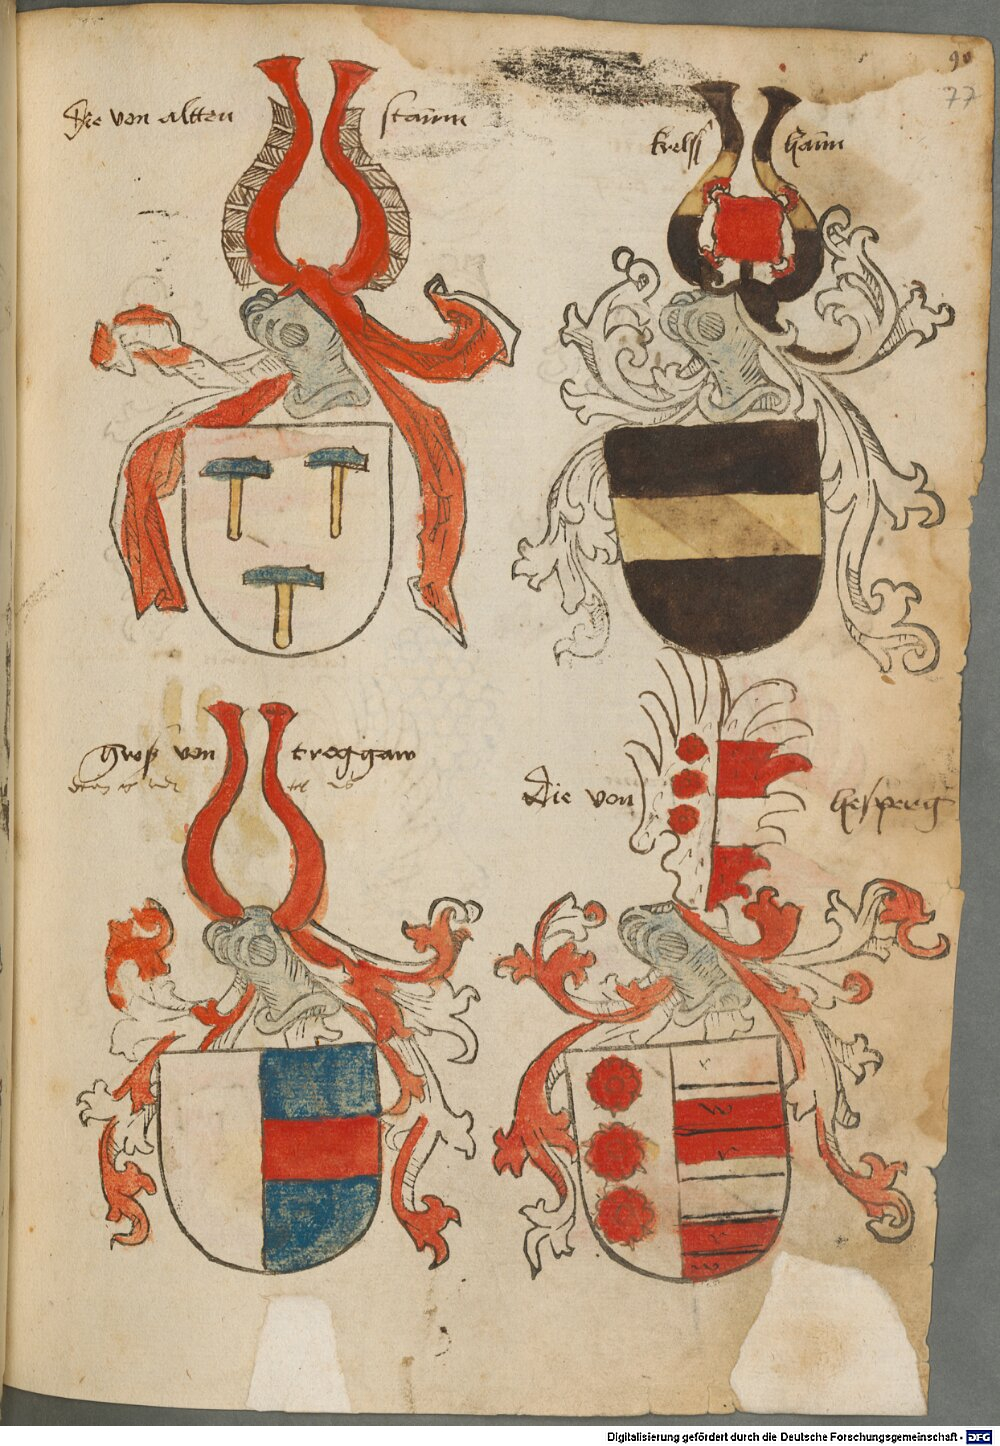 90
77
Die von altten stainn
krelß hainn
Groß von troggaw
Die von hespergͤ
Digitalisierung gefördert durch die Deutsche Forschungsgemeinschaft - DFG